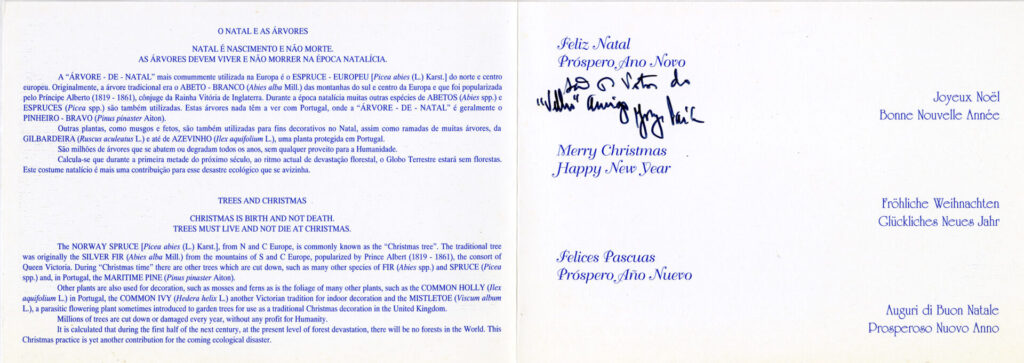 O NATAL E AS ÁRVORES
NATAL É NASCIMENTO E NÃO MORTE.
AS ÁRVORES DEVEM VIVER E NÃO MORRER NA ÉPOCA NATALÍCIA.
A “ÁRVORE - DE - NATAL” mais comummente utilizada na Europa é o ESPRUCE - EUROPEU [Picea abies (L.) Karst.] do norte e centro
europeu. Originalmente, a árvore tradicional era o ABETO - BRANCO (Abies alba Mill.) das montanhas do sul e centro da Europa e que foi popularizada
pelo Príncipe Alberto (1819 - 1861), cônjuge da Rainha Vitória de Inglaterra. Durante a época natalícia muitas outras espécies de ABETOS (Abies spp.) e
ESPRUCES (Picea spp.) são também utilizadas. Estas árvores nada têm a ver com Portugal, onde a “ÁRVORE - DE - NATAL” é geralmente o
PINHEIRO - BRAVO (Pinus pinaster Aiton).
Outras plantas, como musgos e fetos, são também utilizadas para fins decorativos no Natal, assim como ramadas de muitas árvores, da
GILBARDEIRA (Ruscus aculeatus L.) e até de AZEVINHO (Ilex aquifolium L.), uma planta protegida em Portugal.
São milhões de árvores que se abatem ou degradam todos os anos, sem qualquer proveito para a Humanidade.
Calcula-se que durante a primeira metade do próximo século, ao ritmo actual de devastação florestal, o Globo Terrestre estará sem florestas.
Este costume natalício é mais uma contribuição para esse desastre ecológico que se avizinha.
TREES AND CHRISTMAS
CHRISTMAS IS BIRTH AND NOT DEATH.
TREES MUST LIVE AND NOT DIE AT CHRISTMAS.
The NORWAY SPRUCE [Picea abies (L.) Karst.], from N and C Europe, is commonly known as the “Christmas tree”. The traditional tree
was originally the SILVER FIR (Abies alba Mill.) from the mountains of S and C Europe, popularized by Prince Albert (1819 - 1861), the consort of
Queen Victoria. During “Christmas time” there are other trees which are cut down, such as many other species of FIR (Abies spp.) and SPRUCE (Picea
spp.) and, in Portugal, the MARITIME PINE (Pinus pinaster Aiton).
Other plants are also used for decoration, such as mosses and ferns as is the foliage of many other plants, such as the COMMON HOLLY (Ilex
aquifolium L.) in Portugal, the COMMON IVY (Hedera helix L.) another Victorian tradition for indoor decoration and the MISTLETOE (Viscum album
L.), a parasitic flowering plant sometimes introduced to garden trees for use as a traditional Christmas decoration in the United Kingdom.
Millions of trees are cut down or damaged every year, without any profit for Humanity.
It is calculated that during the first half of the next century, at the present level of forest devastation, there will be no forests in the World. This
Christmas practice is yet another contribution for the coming ecological disaster.
Feliz Natal
Próspero Ano Novo
são os votos do
"Velho" amigo
Joyeux Noël
Bonne Nouvelle Année
Merry Christmas
Happy New Year
Fröhliche Weihnachten
Glückliches Neues Jahr
Felices Pascuas
Próspero Año Nuevo
Auguri di Buon Natale
Prosperoso Nuovo Anno